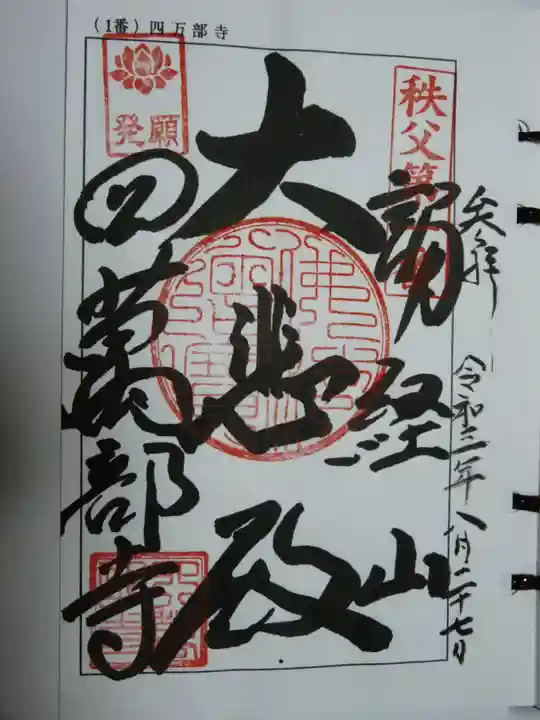 (1番) 四万部寺
奉拝
令和三年八月二十七日
秩父第
誦経山
大悲殿
発願
四萬部寺